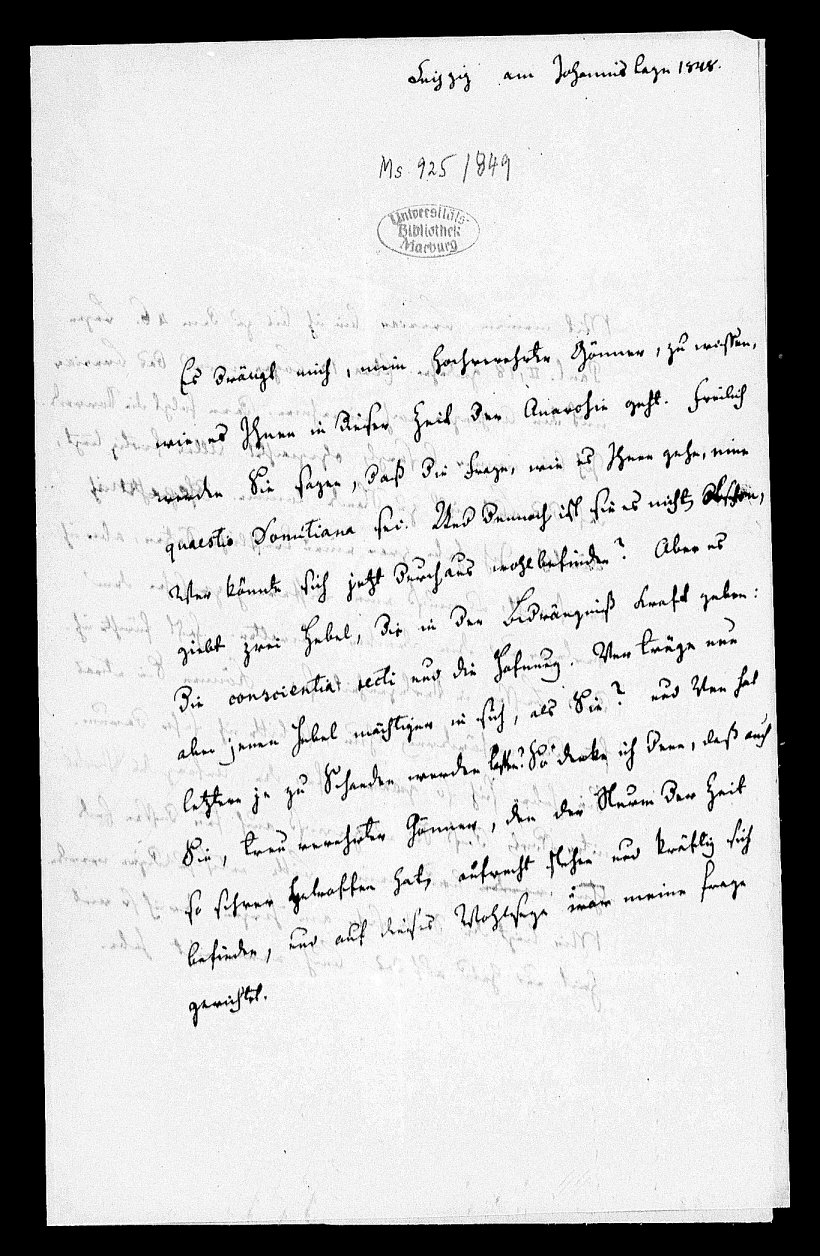 Leipzig am Johannistage 1848.
Ms 925/849
Universitäts-
Bibliothek
Marburg
Es drängt mich, mein hochverehrter Gönner, zu wissen,
wie es Ihnen in dieser Zeit der Anarchie geht. Freilich
werden Sie sagen, daß die Frage, wie es Ihnen gehe, eine
quaestio Domitiana sei. Und dennoch ist sie es nicht,
Wer könnte sich jetzt durchaus wohlbefinden? Aber es
giebt zwei Hebel, die in der Bedrängniß Kraft geben:
die conscientia recti und die Hofnung. Wer trüge nun
aber jenen Hebel mächtiger in sich, als Sie? und Wen hat
letztere je zu Schanden werden lassen? So denke ich denn, daß auch
Sie, treu verehrter Gönner, den der Sturm der Zeit
so schwer getroffen hat, aufrecht stehen und kräftig sich
befinden, und auf dieses war meine Frage
gerichtet.